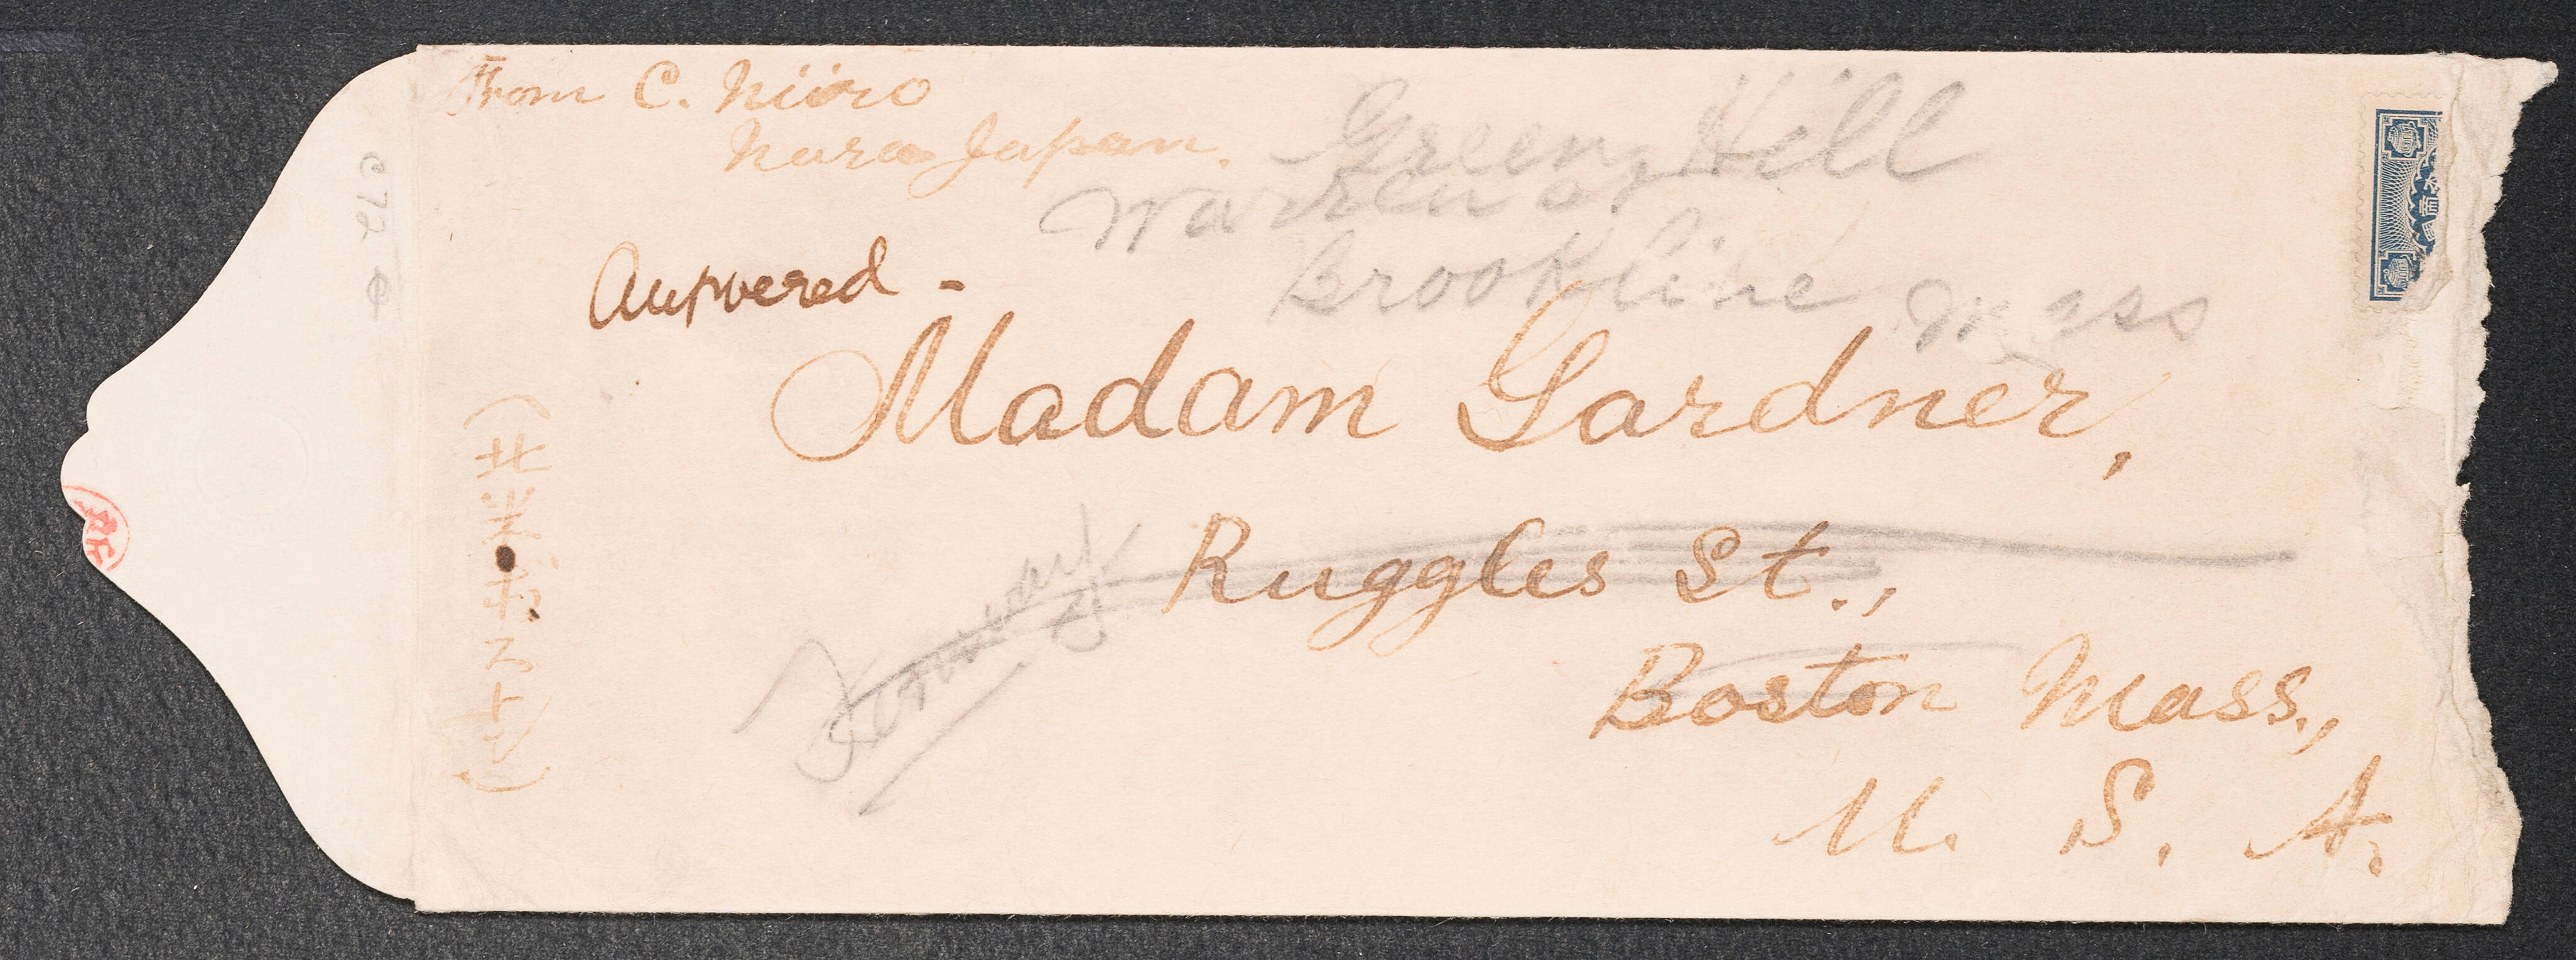 From C. Niiro
Nara Japan.
Green Hill
Warren St.
Brookline Mass
Answered -
Madam Gardner,
Ruggles St.,
Boston Mass.,
U. S. A.
(北米ボストン)